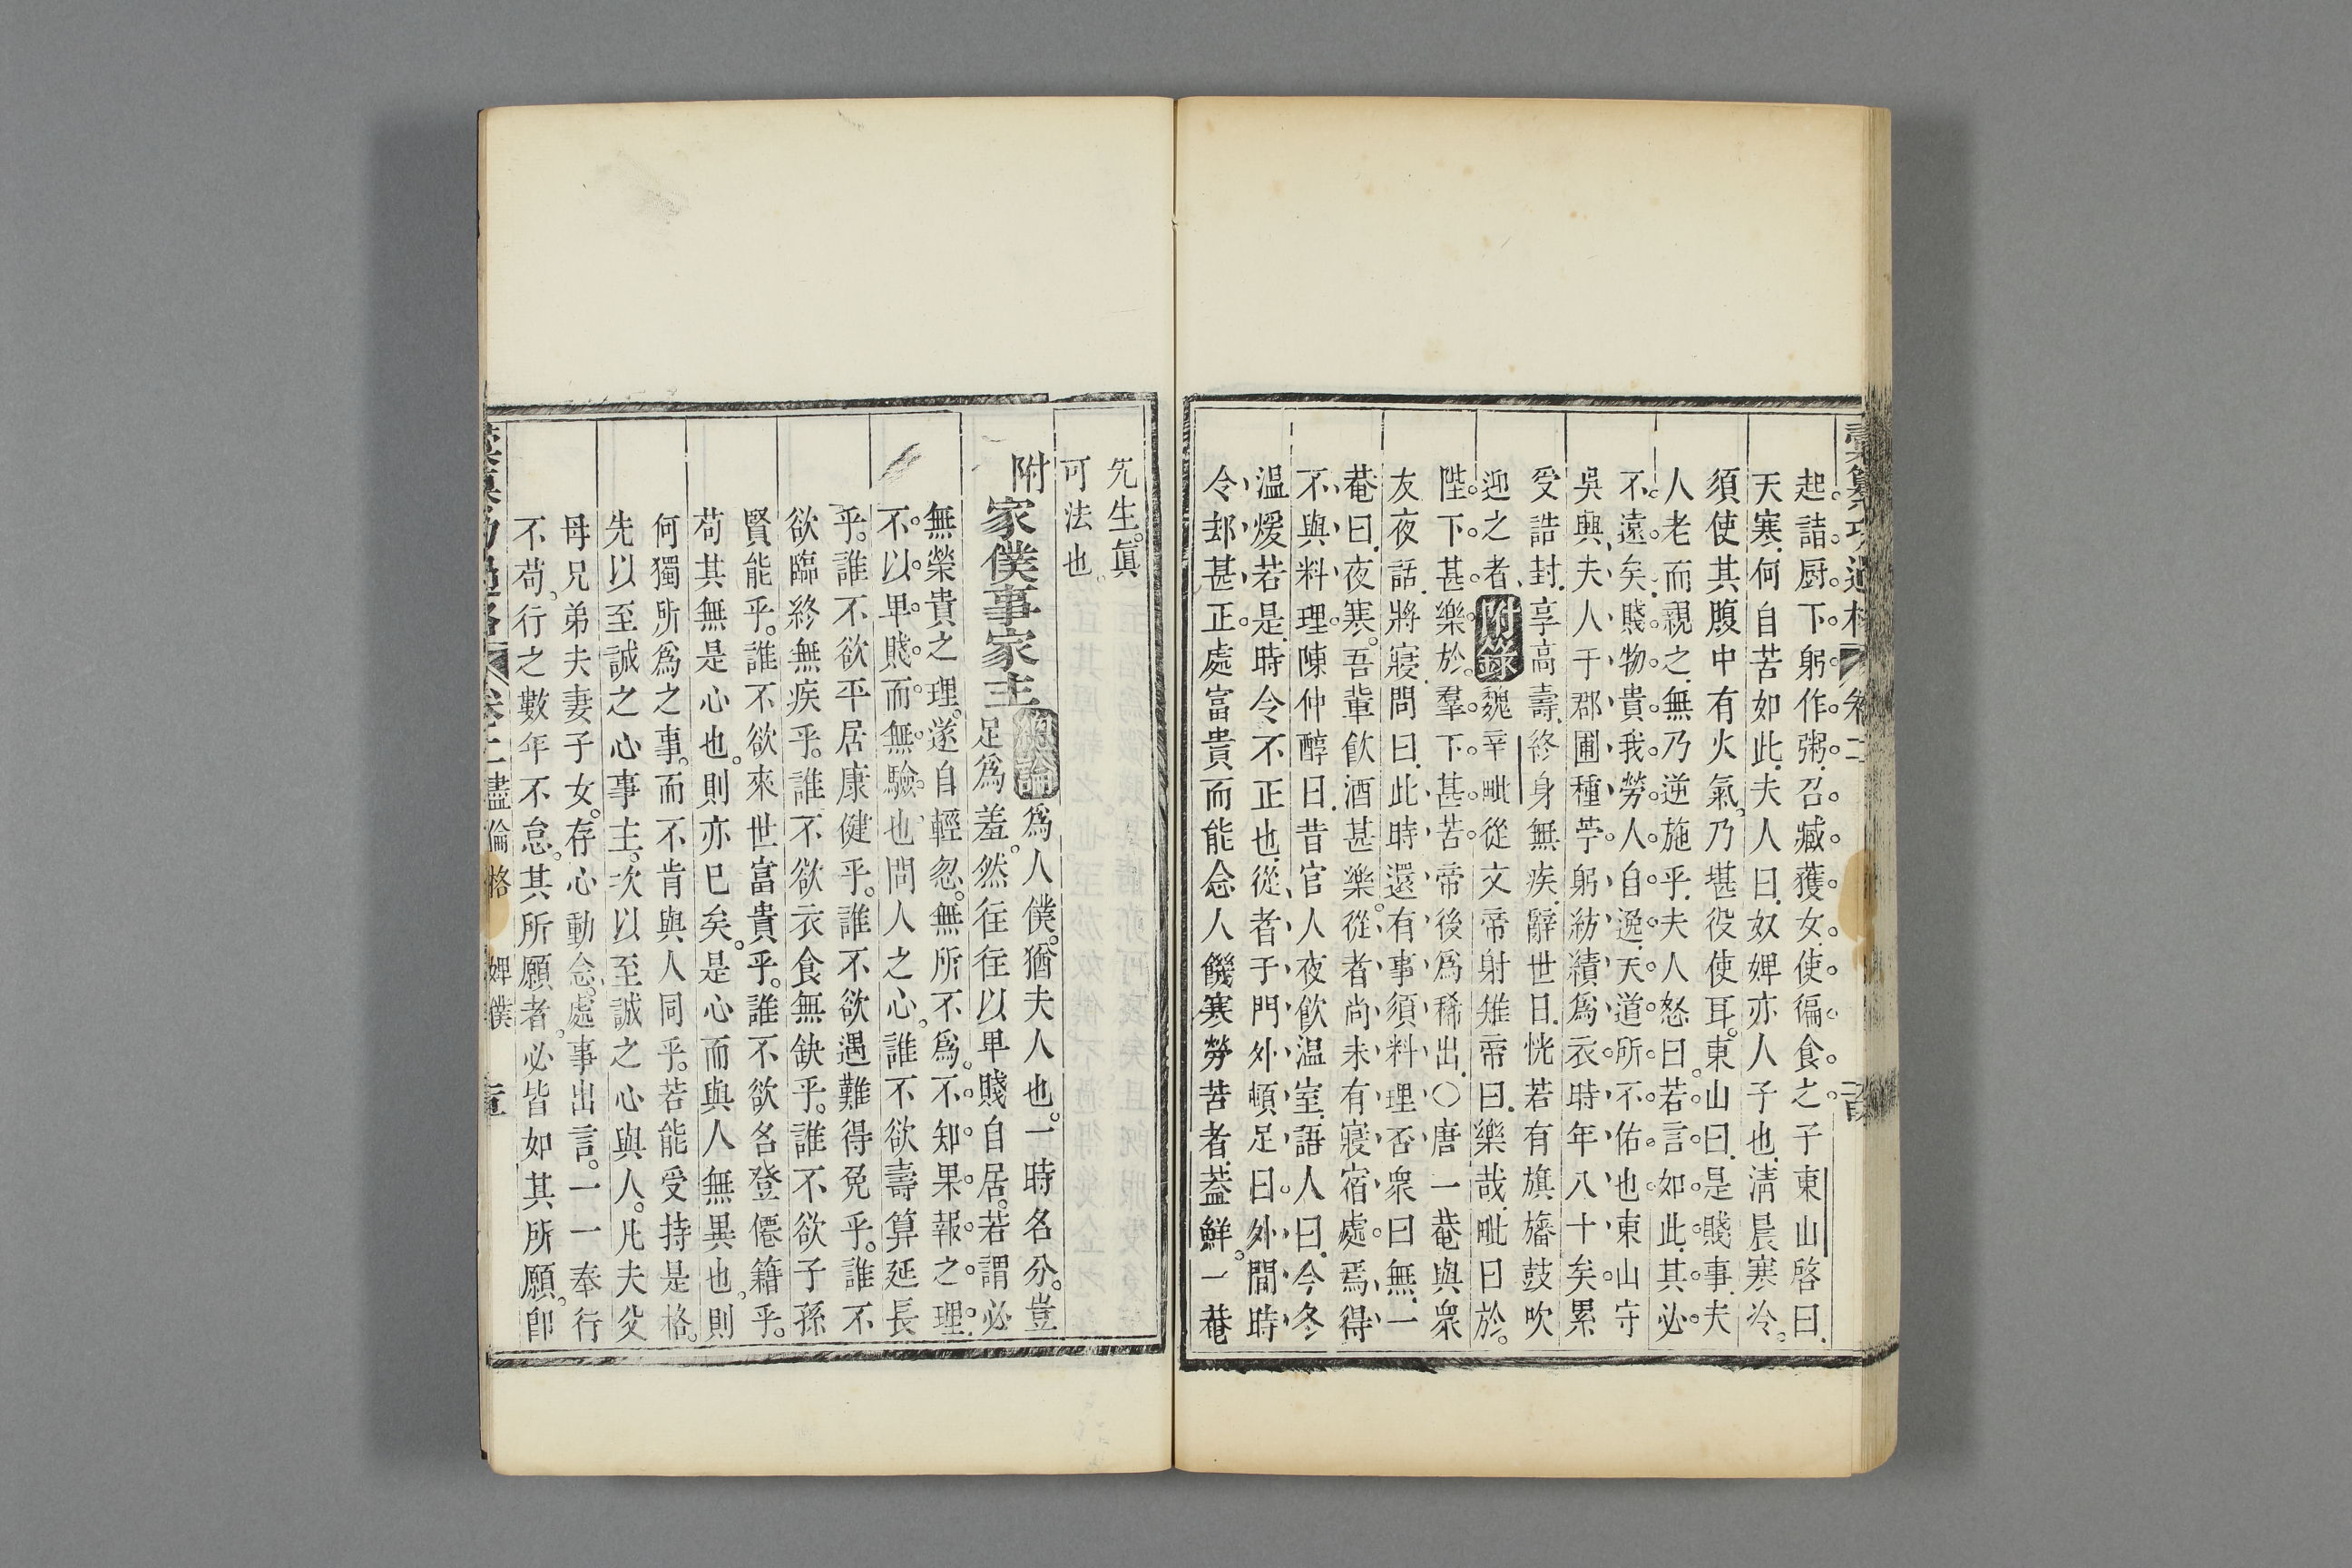 起詰厨下躬作粥召臧獲女使徧食之子東山啓曰
天寒何自苦如此夫人曰奴婢亦人子也淸晨寒冷
須使其腹中有火氣乃堪役使耳東山曰是賤事夫
人老而親之無乃逆施乎夫人怒曰若言如此其必
不遠矣賤物貴我勞人自逸天道所不佑也東山守
吳興夫人于郡圃種苧躬紡績爲衣時年八十矣累
受誥封享高壽終身無疾辭世日恍若有旗旛鼓吹
迎之者附錄魏辛毗從文帝射雉帝曰樂哉毗曰於
陛下甚樂於羣下甚苦帝後爲稀出○唐一菴與衆
友夜話將寢問曰此時還有事須料理否衆曰無一
菴曰夜寒吾輩飮酒甚樂從者尚未有寢宿處焉得
不與料理陳仲醇曰昔官人夜飮温室語人曰今冬
温煖若是時令不正也從者于門外頓足曰外間時
令却甚正處富貴而能念人饑寒勞苦者葢鮮一菴
先生眞
可法也
附家僕事家主總論爲人僕猶夫人也一時名分豈
足爲羞然往往以卑賤自居若謂必
無榮貴之理遂自輕忽無所不爲不知果報之理
不以卑賤而無驗也問人之心誰不欲壽算延長
乎誰不欲平居康健乎誰不欲遇難得免乎誰不
欲臨終無疾乎誰不欲衣食無缺乎誰不欲子孫
賢能乎誰不欲來世富貴乎誰不欲名登僊籍乎
苟其無是心也則亦已矣是心而與人無異也則
何獨所爲之事而不肯與人同乎若能受持是格
先以至誠之心事主次以至誠之心與人凡夫父
母兄弟夫妻子女存心動念處事出言一一奉行
不苟行之數年不怠其所願者必皆如其所願卽
盡倫格 婢僕